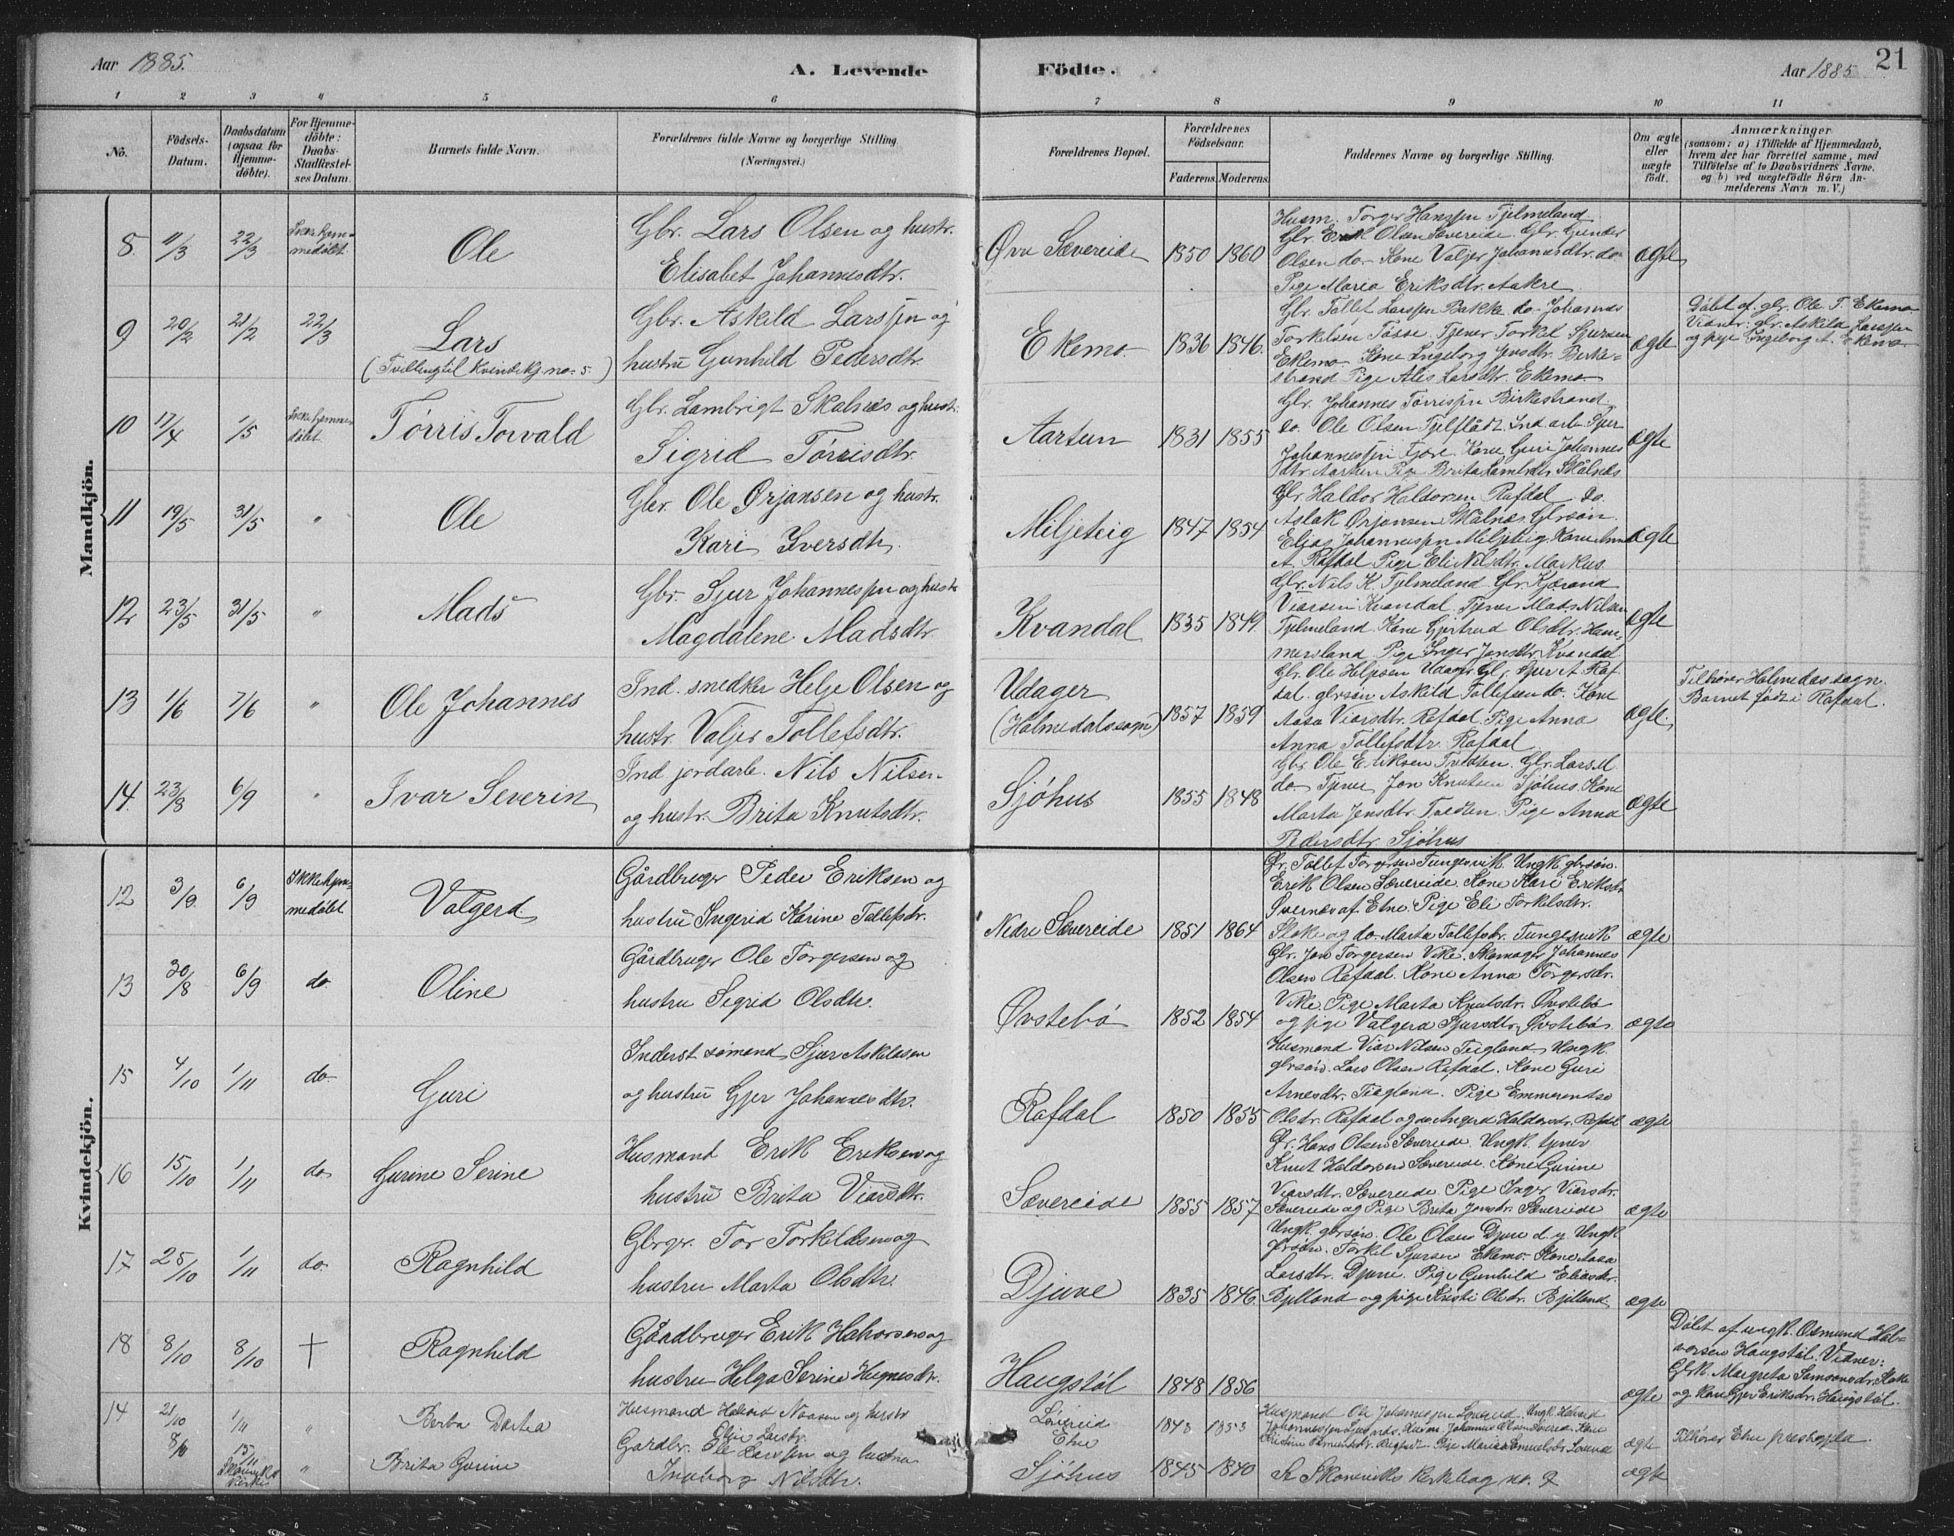 Aar 1885.
A. Levende Födte.
Aar 1885
21
1 2 3 4 5 6 7 8 9 10 11
No.
Födsels-Datum.
Daabsdatum (ogsaa for Hjemme-döbte).
For Hjemme-döbte: Daabs-Stadfæstel-ses Datum.
Barnets fulde Navn.
Forældrenes fulde Navne og borgerlige Stilling
(Næringsvei.)
Forældrenes Bopæl.
Forældrenes Födselsaar.
Faderens. Moderens.
Faddernes Navne og borgerlige Stilling.
Om ægte eller uægte födt.
Anmærkninger
(saasom: a) i Tilfælde af Hjemmedaab, hvem der har forrettet samme, med Tilföielse af to Daabsvidners Navne, og b) ved uægtefödte Börn Anmelderens Navn m. V.)
Mandkjön.
8 11/3 22/3 Ole
Gbr. Lars Olsen og hustr.
Elisabet Johannesdtr.
Øvre Sævereide 1850 1860
Husm. Torger Hanssen Tjelmeland
Gbr. Erik Olsen Sævereide Gbr. Gunder
Olsen do Kone Valjer Johannesdtr. do
Pige Maria Eriksdtr. Aakre
ægte
9 20/2 21/2 22/3 Lars
(Tvilling til Kvindekj. no. 5)
Gbr. Askild Larssen og
hustru Gunhild Pedersdtr.
Ekemo. 1836 1846.
Gbr. Tollef Larssen Bakke do Johannes
Torkelsen Tösse Tjener Torkel Sjursen
Ekemo Kone Ingeborg Jensdtr. Birke-
strand Pige Alis Larsdtr. Ekemo
ægte
Döbt af gbr. Ole T. Ekemo
Vidner: gbr. Askild Larssen
og pige Ingeborg A. Ekemo
10 17/4 1/5 Tørris Torvald
Gbr. Lambrigt Skalnes og hustr.
Sigrid Tørrisdtr.
Aartun 1831 1855
Gbr. Johannes Tørrissen Birkstrand
do. Ole Olsen Tjelflådt Ind arb. Sjur
Johannessen Fjære Kone Guri Johannes
dtr. Aartun Pige Brita Lambrdtr. Skålnes
ægte
11 19/5 31/5 " Ole
Gbr. Ole Ørjansen og hustr.
Kari Iversdtr.
Miljeteig 1847 1854
Gbr Haldor Haldorsen Rafdal do.
Aslak Ørjansen Skålnes Gbrsøn
Elias Johannessen Miljeteig Kone Anna
A Rafdal Pige Eli Nilsdtr. Markus.
ægte
12 23/5 31/5 " Mads
Gbr. Sjur Johannessen og hustr
Magdalene Madsdtr
Kvandal 1835 1849
Gbr. Nils K Tjelmeland Gbr Kjærand
Viarsen Kvandal Tjener Mads Nilsen
Tjelmeland Kone Gjertrud Olsdtr. Ham-
mersland Pige Inger Jensdtr Kvandal
ægte
13 1/6 7/6 " Ole Johannes
Ind. snedker Helje Olsen og
hustr. Valjer Tollefsdtr.
Udager
(Holmedals sogn) 1857 1859
Gbr Ole Heljesen Udager Gbr. Sjur A Raf-
dal. gbrsøn Askild Tollefsen do. Kone
Aasa Viarsdtr. Rafdal. Pige Anna
Anna Tollefsdtr. Rafdal
ægte.
Tilhører Holmedas sogn.
Barnet født i Rafdal.
14. 23/8 6/9 " Ivar Severin
Ind jordarb. Nils Nilsen
og hustr. Brita Knutsdtr.
Sjöhus 1855 1848
Gbr Ole Eriksen Tvedten. Gbr. Lars M
do Tjener Jon Knutsen Sjöhus Kone
Marta Jensdtr Tvedten Pige Anna
Pedersdtr Sjöhus
ægte
Kvindekjön.
12 3/9 6/9 Ikke hjem-
medöbt Valgerd
Gårdbruger Peder Eriksen og
hustru Ingerid Karine Tollefsdr.
Nedre Sævereide 1851 1864
Gr. Tollef Torgersen Tungesvik Ungk gbrsøn.
Erik Olsen Sævereide. Kone Kari Eriksdr.
Svernæs af Etne. Pige Eli Torkilsdr.
Stoke og do. Marta Tollefsdr. Tungesvik
ægte
13 30/8 6/9 do Oline
Gårdbruger Ole Torgersen og
hustru Sigrid Olsdtr.
Øvstebö 1852 1854
Gbr. Jon Torgersen Vike. Skomager Johannes
Olsen Rafdal. Kone Anna Torgersdr.
Vike. Pige Marta Knutsdr. Øvstebö
og pige Valgerd Sjursdtr. Øvstebö.
ægte
15 4/10 1/11 do Guri
Inderst sømand Sjur Askildsen
og hustru Gjer Johannesdtr.
Rafdal 1850 1855
Husmand Viar Nilsen Teigland. Ungk.
gbrsøn. Lars Olsen Rafdal. Kone Guri
Arnesdtr. Teigland. Pige Emmerentse
Olsdr. Rafdal og do Ingerd Haldorsdr. Rafdal
ægte
16 15/10 1/11 do Gurine Serine
Husmand Erik Eriksen og
hustru Brita Viarsdtr.
Sævereide 1855 1857
Gr. Hans Olsen Sævereide. Ungk. tjener
Knut Haldorsen Sævereide. Kone Gurine
Viarsdtr. Sævereide. Pige Inger Viarsdr.
Sævereide og Pige Brita Jonsdr. Sævereide
ægte
17 25/10 1/11 do Ragnhild
Gbrger. Tor Torkildsen og
hustru Marta Olsdtr.
Djuve 1835 1846
Ungk. gbrsøn. Ole Olsen Djuve d. y. Ungk
Torkel Sjursen Ekemo. Kone Aasa
Larsdtr. Djuve. Pige Gunhild Eliasdr.
Bjelland og pige Kristi Olsdr. Bjelland
ægte
18 8/10 8/10 † Ragnhild
Gårdbruger Erik Halvorsen og
hustru Helga Serine
Haugstöl 1848 1856
ægte
Döbt af ungk. Osmund Hal-
vorsen Haugstöl. Vidner:
Gbrk. Margreta Samsonsdr.
og kone Gjer Eriksdr. Haugstöl.
14 21/10 1/11 " Berta Dortea
Husmand Noasen og hustr
Larsdr.
Etne 1843 1853
Husmand Ole Johannessen Ungk Halvard
ægte
Tilhører Etne præstegjeld.
8/10 15/11 " Brita Gurine
Gårdbr. Ole Larssen og
Ingeborg Nilsdtr.
Sjöhus 1845 1840
Se Skonevikes Kirkebog no. 2
ægte